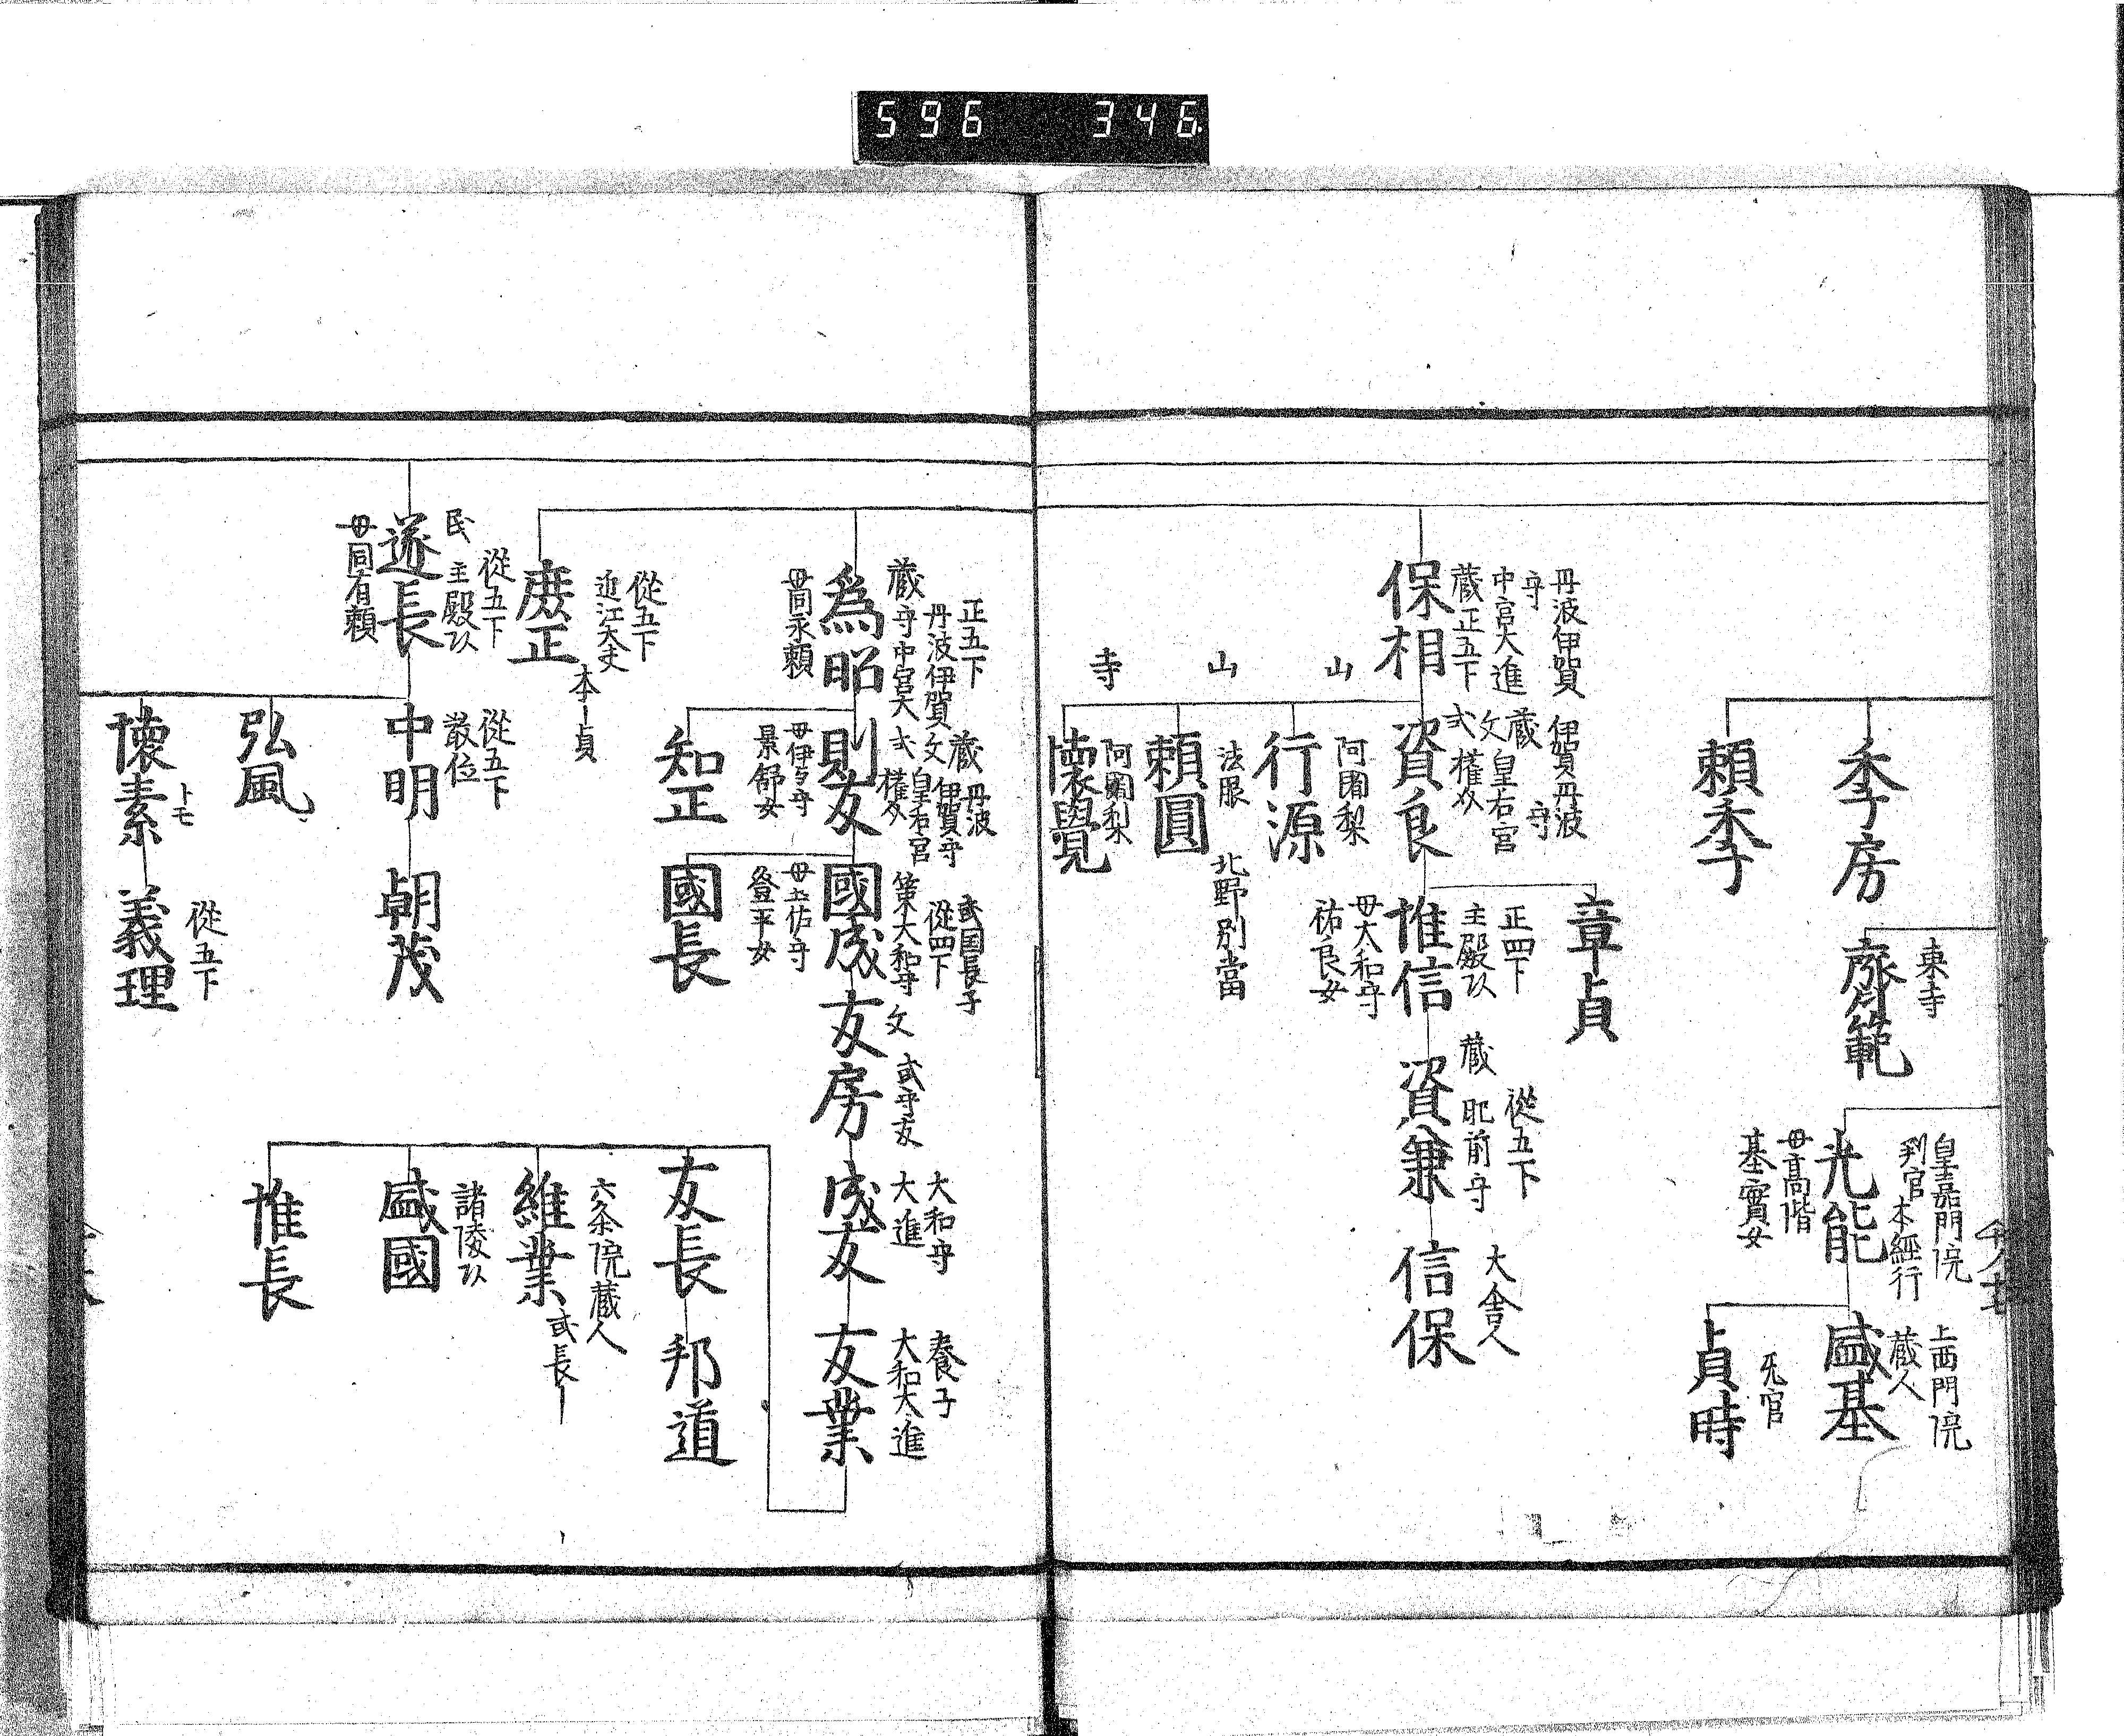 596 346
季房
頼季
東寺
範
皇嘉門院
判官 本經行
光能
母高階
基實女
上西門院
蔵人
盛基
貞時
丹波伊賀
守
中宮大進
蔵 正五下
保相
伊賀丹波
守
蔵
文 皇右宮
式 權次
資良
章貞
正四下
主殿以
惟信
母大和守
祐良女
従五下
蔵 肥前守
資兼
大舎人
信保
山
阿闍梨
行源
山
法眼
北野別當
頼圓
寺
阿闍梨
懐覺
正五下
丹波伊賀
蔵 守中宮大
爲昭
母同永頼
蔵 丹波
文 伊賀守
皇右宮
式 權次
則友
或国長子
従四下
策大和守
國成
文 或守友
友房
大和守
大進
成友
養子
大和大進
友業
知正
母伊与守
景舒女
國長
母土佐守
登平女
従五下
近江大夫
本|貞
友長
邦道
六条院蔵人
維業
或長|
諸陵以
盛國
惟長
従五下
民 主殿以
遂長
母同有頼
従五下
散位
中明
朝茂
弘風
懐素
トモ
従五下
義理